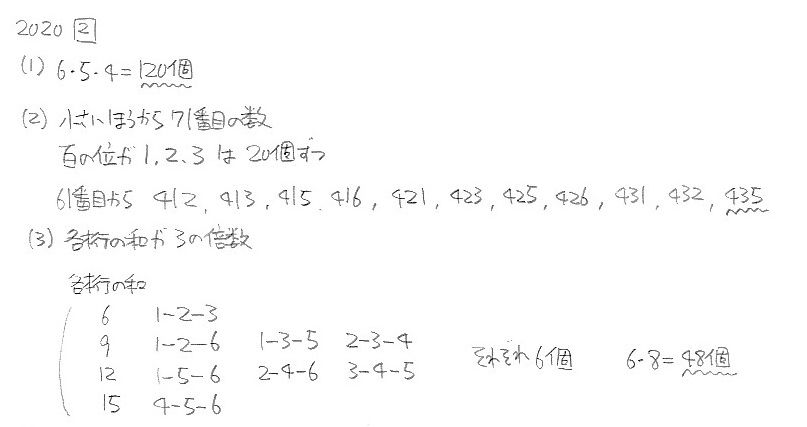 2020 2
(1) 6・5・4=120個
(2) 小さいほうから71番目の数
百の位が1、2、3は20個ずつ
61番目から 412, 413, 415, 416, 421, 423, 425, 426, 431, 432, 435
(3) 各桁の和が3の倍数
各桁の和
6 1-2-3
9 1-2-6 1-3-5 2-3-4
12 1-5-6 2-4-6 3-4-5 それぞれ6個 6・8=48個
15 4-5-6